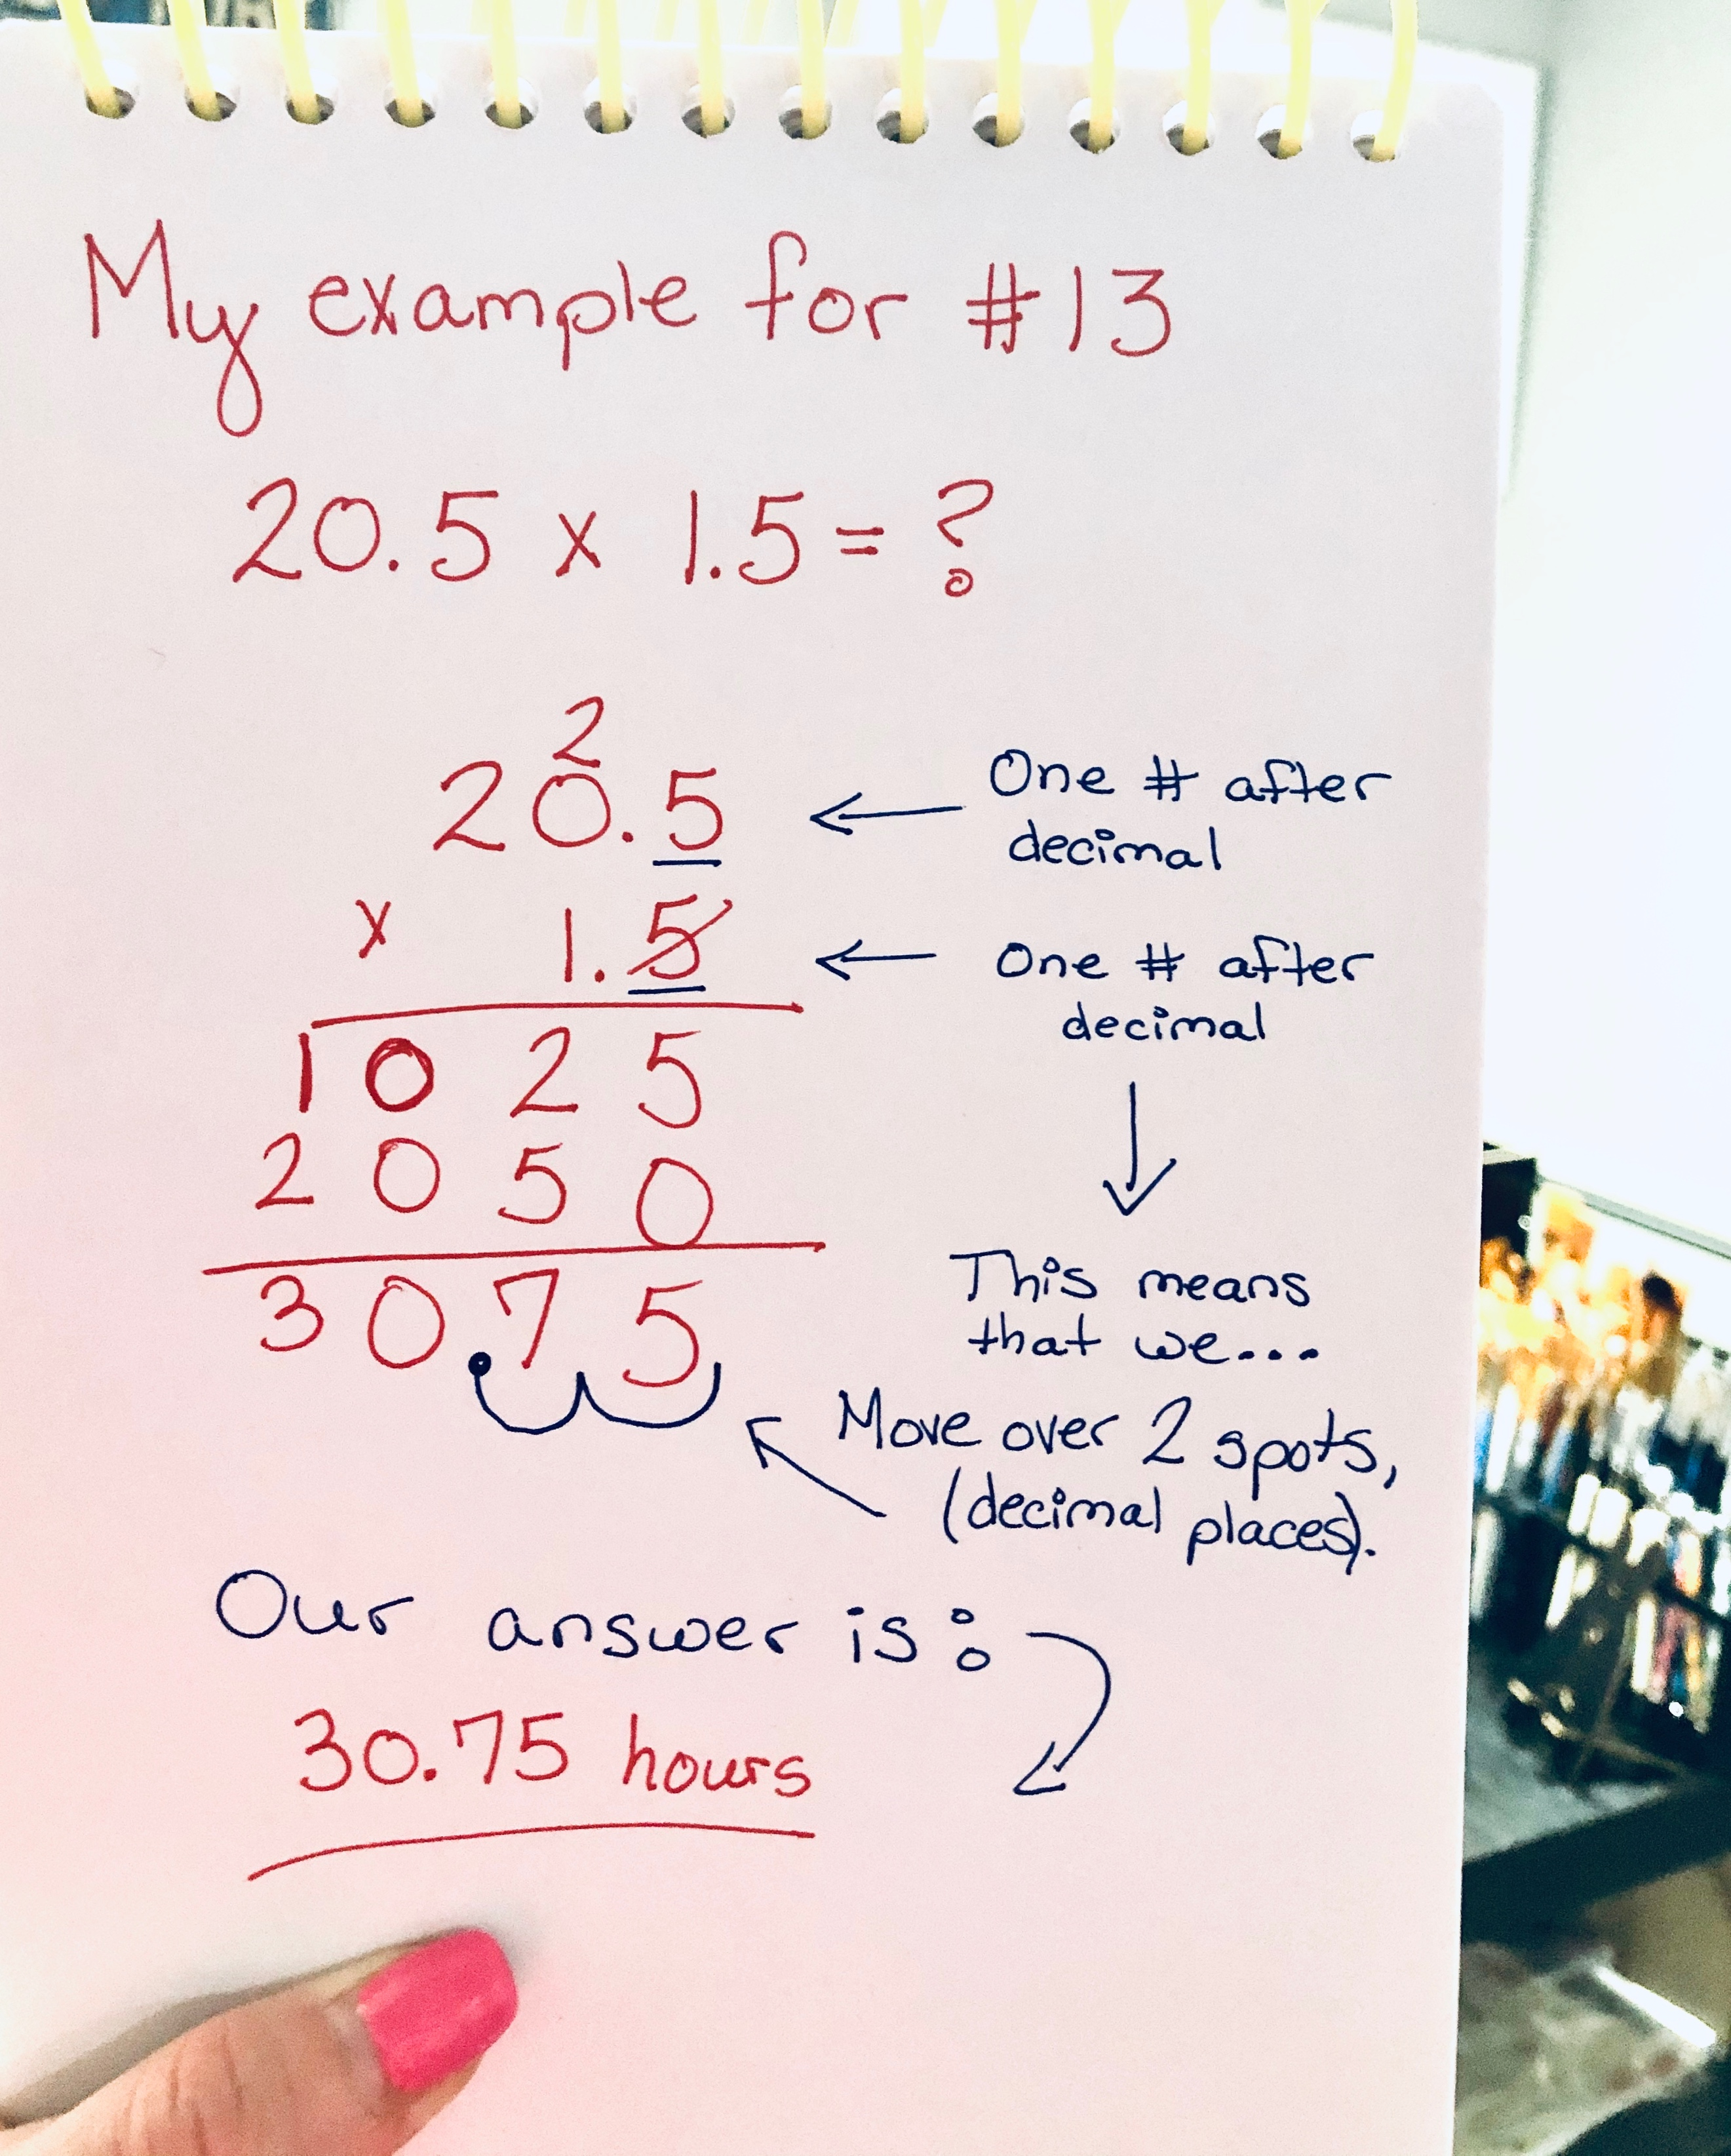 My example for #13
20.5 x 1.5 = ?
2
20.5
One # after
decimal
x 1.5
One # after
decimal
1025
2050
30.75
This means
that we...
Move over 2 spots,
(decimal places).
Our answer is:
30.75 hours